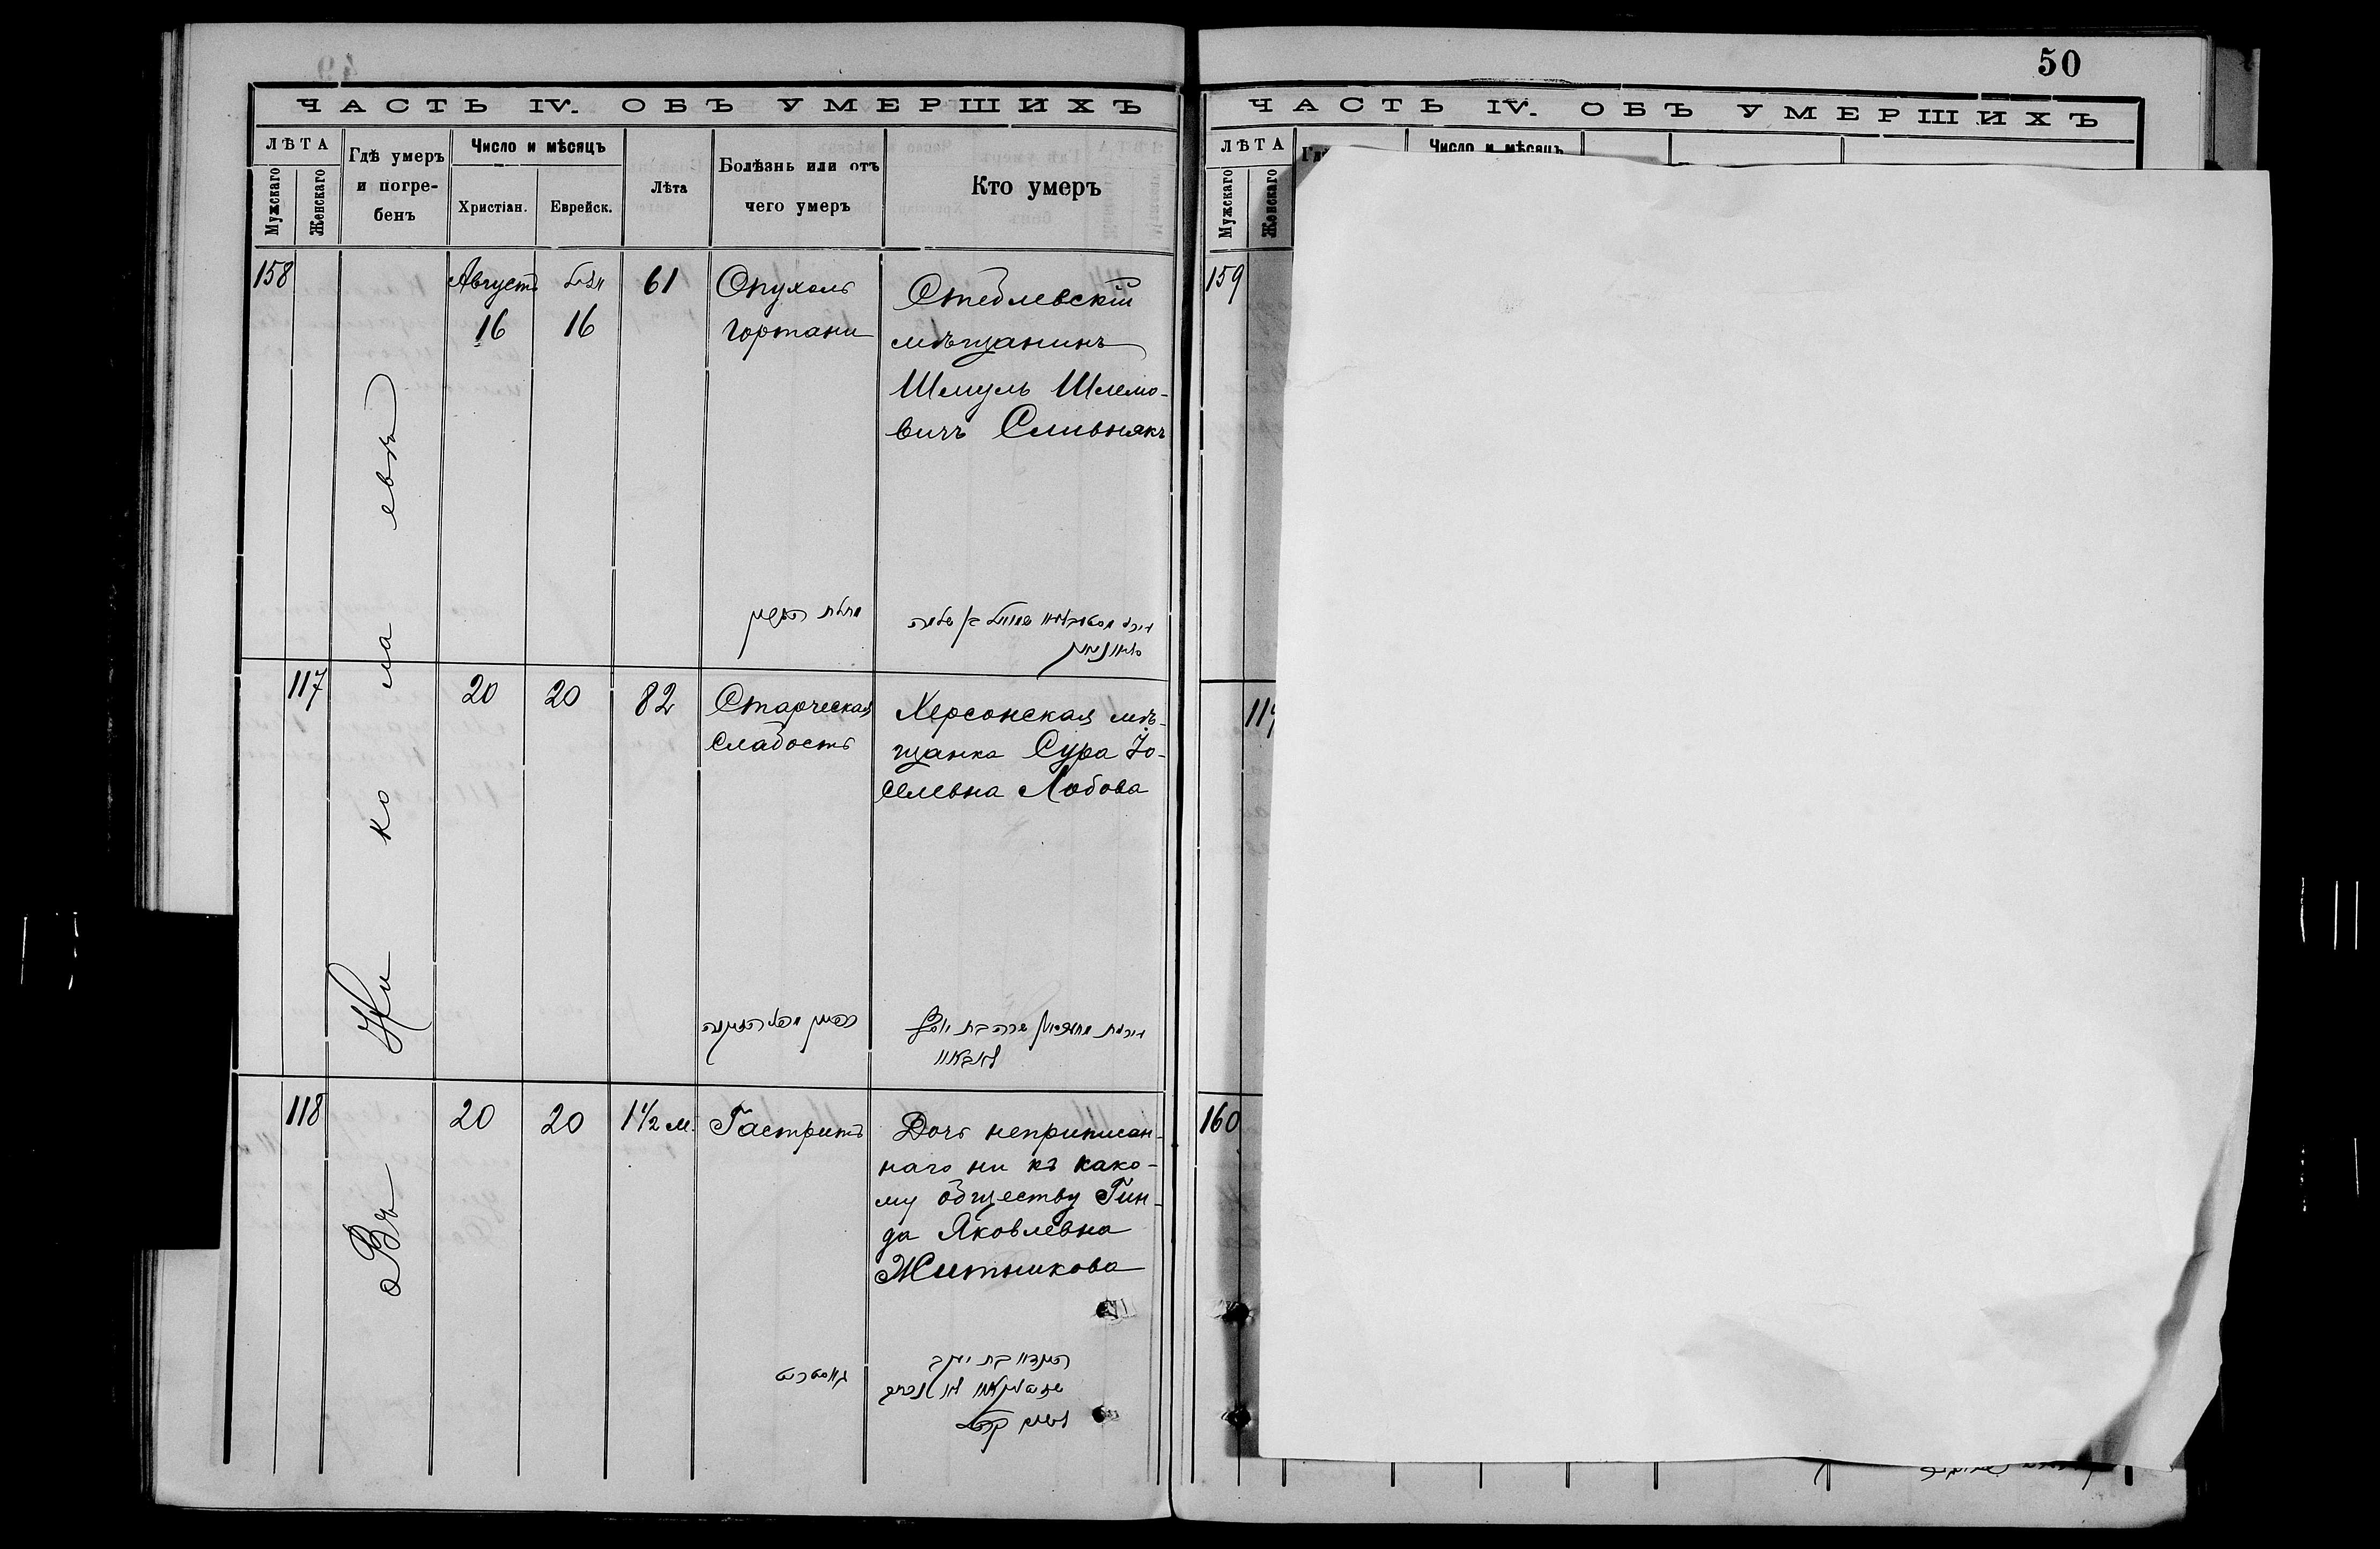 ЧАСТЬ IV. ОБЪ УМЕРШИХЪ
ЛѢТА
Мужскаго
Женскаго
Гдѣ умеръ
и погре-
бенъ
Число и мѣсяцъ
Христіан.
Еврейск.
Лѣта
Болѣзнь или отъ
чего умеръ
Кто умеръ
158
Августъ
16
16
61
Опухоль
гортани
Стеблевскій
мѣщанинъ
Шмуль Шлемо-
вичъ Сливнякъ
117
20
20
82
Старческая
слабость
Херсонская мѣ-
щанка Сура Іо-
селевна Лобова
118
20
20
1 1/2 м.
Гастритъ
Дочь неприписан-
наго ни къ како-
му обществу Гин-
да Яковлевна
Житникова
Въ Николаевѣ
50
ЧАСТЬ IV. ОБЪ УМЕРШИХЪ
ЛѢТА
Мужскаго
Женскаго
Число и мѣсяцъ
159
160